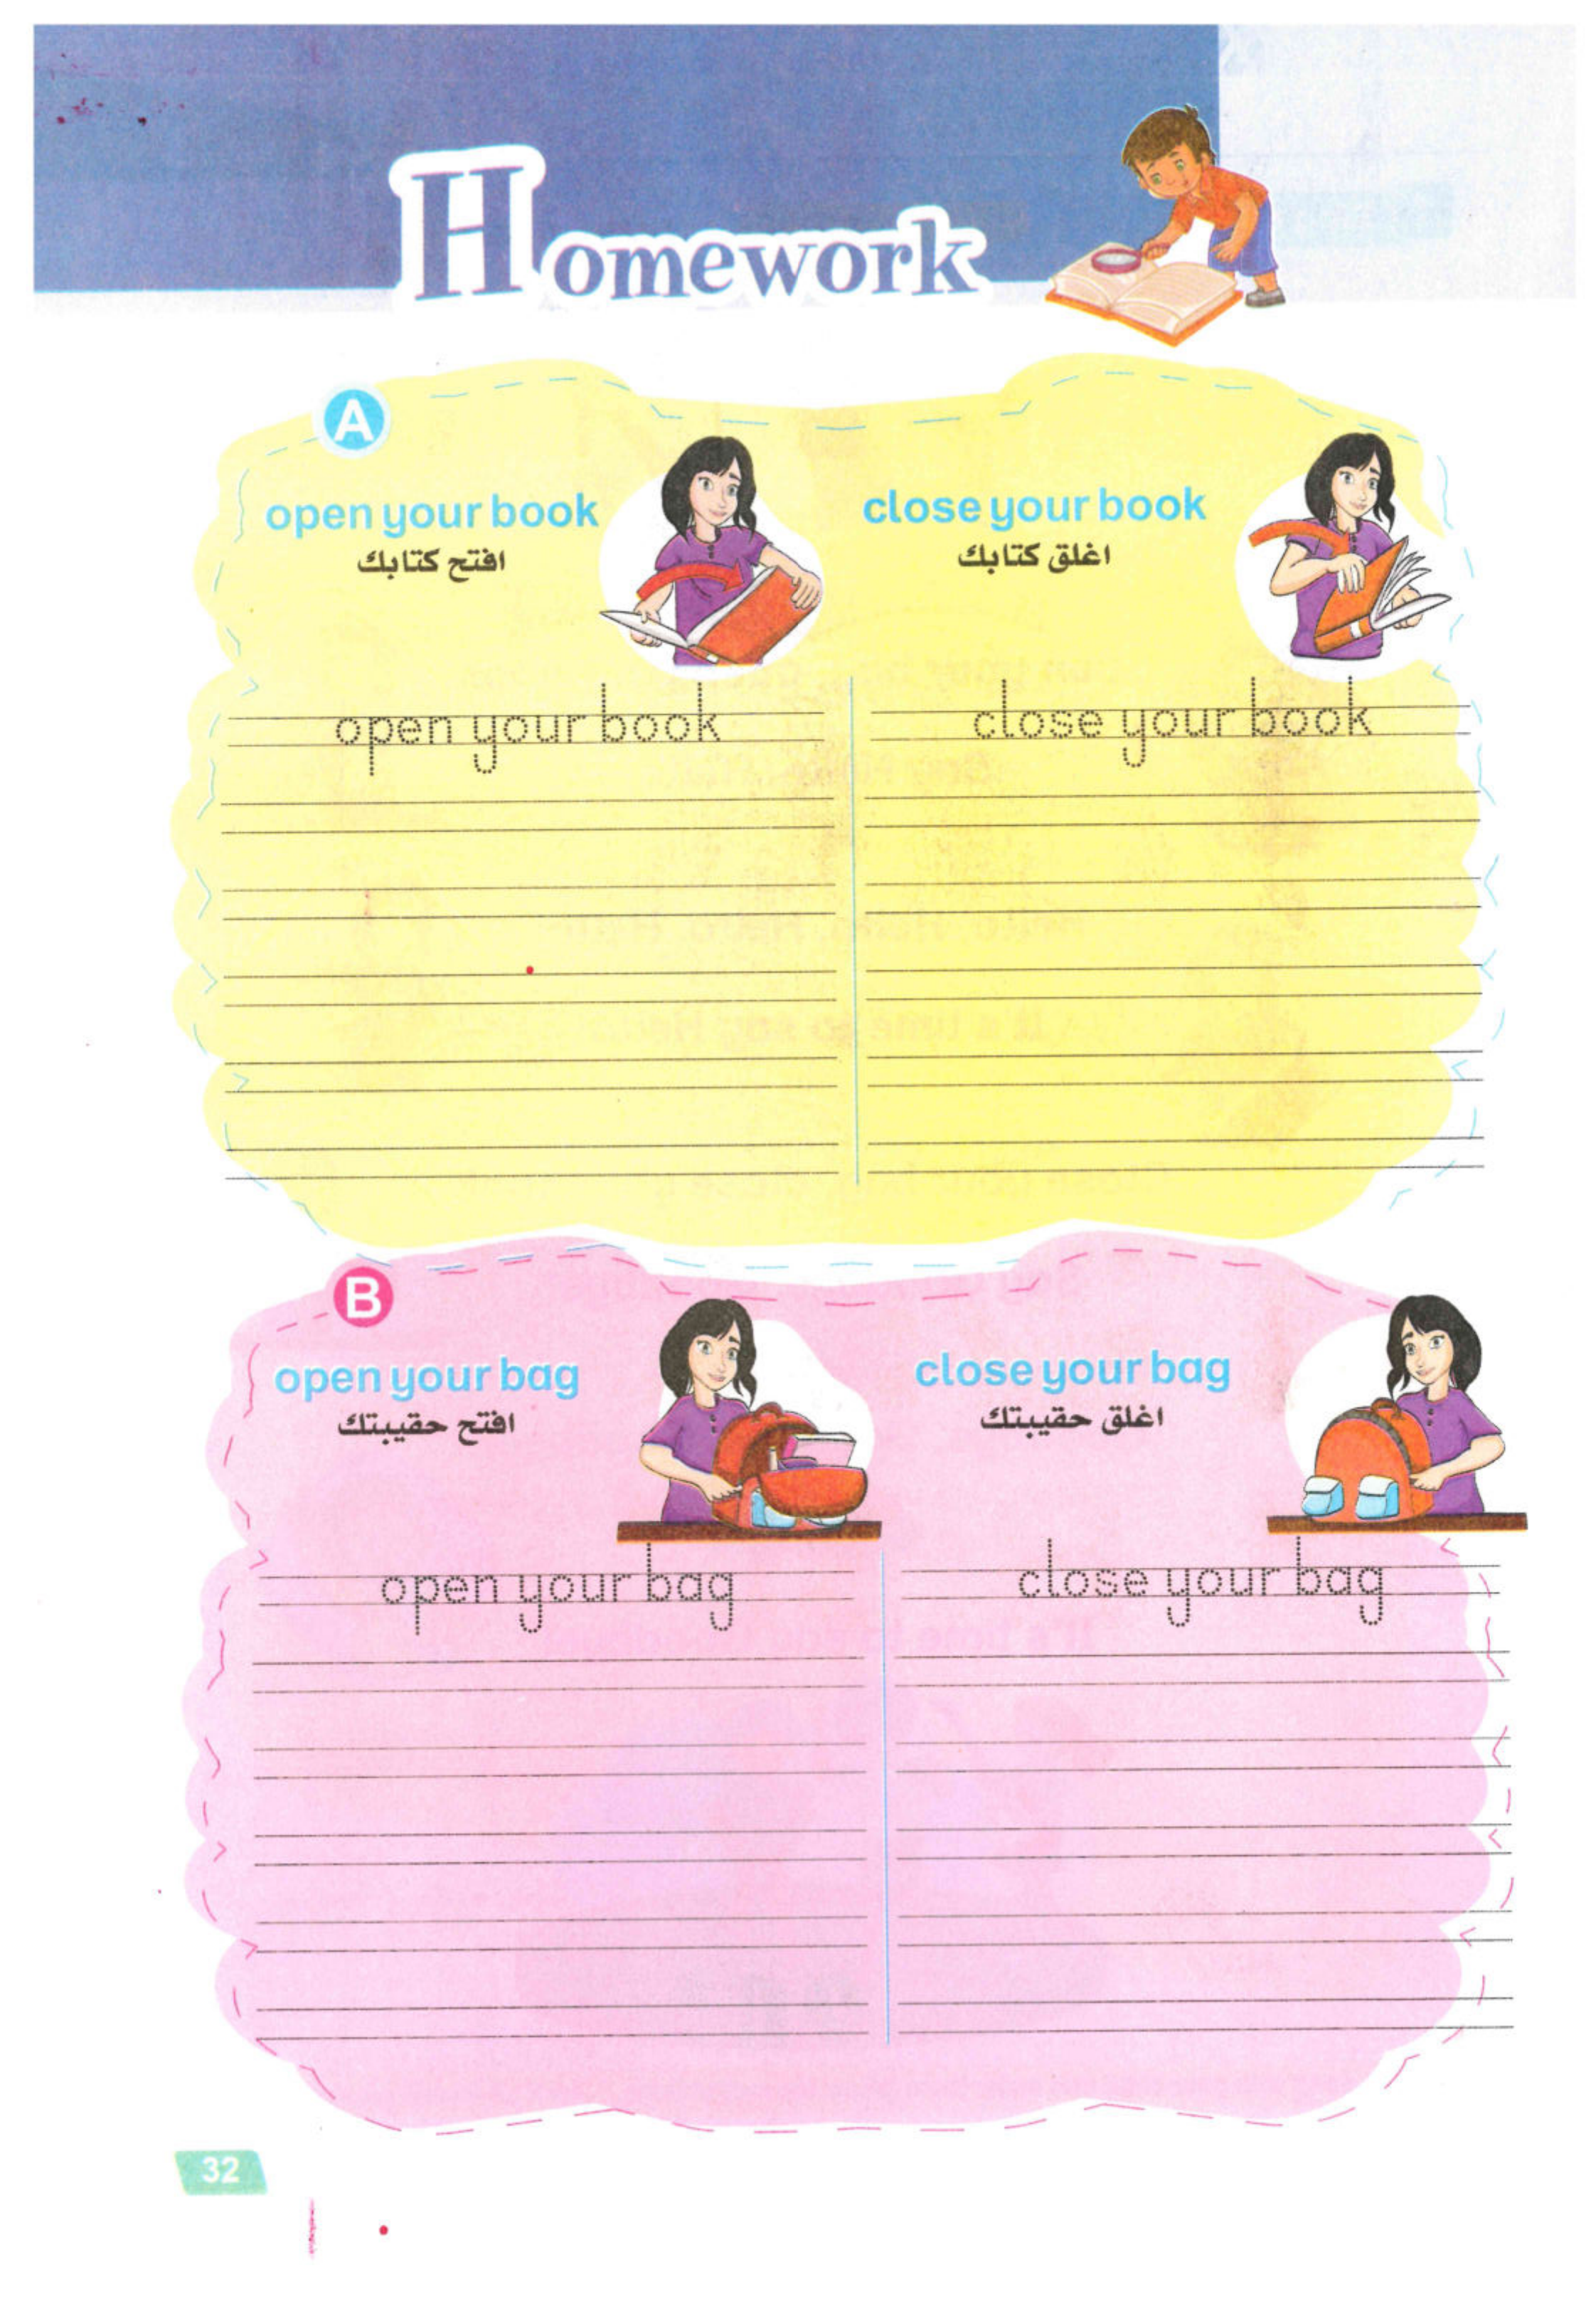 Homework
A
open your book
افتح كتابك
close your book
اغلق كتابك
open your book
close your book
B
open your bag
افتح حقيبتك
close your bag
اغلق حقيبتك
open your bag
close your bag
32